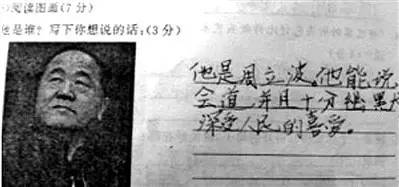 阅读图画(7 分)
他是谁?写下你想说的话:(3 分)
他是周立波。他能说
会道,并且十分幽默
深受人民的喜爱。